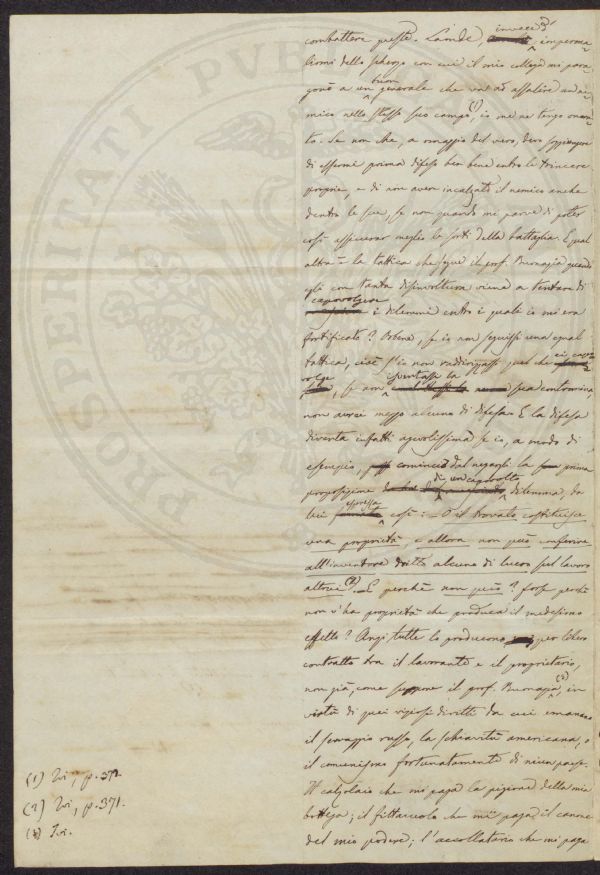 combattere queste. Laonde, invece d'
imperma-
lirmi dello scherzo con cui il mio collega mi para-
gonò a un buon generale che va ad assalire un ne-
mico nello stesso suo campo, (1) io me ne tengo onora-
to. Se non che, a omaggio del vero, devo soggiungere
di essermi prima difeso ben bene entro le trincere
proprie, e di non avere incalzato il nemico anche
dentro le sue, se non quando mi parve di poter
così assicurar meglio le sorti della battaglia. E qual
altra è la tattica che segue il prof. Buonazia quando
egli con tanta disinvoltura viene a tentare di
capovolgere
i dilemmi entro i quali io mi era
fortificato? Orbene, se io non seguissi una egual
tattica, cioè s'io non raddrizzassi quel che ei capo-
volge, se non spuntassi la sua contromina,
non avrei mezzo alcuno di difesa. E la difesa
diventa infatti agevolissima se io, a modo di
esempio, comincio dal negargli la prima
proposizione di un capovolto dilemma, da
lui espressa così: — O il trovato costituisce
una proprietà, e allora non può conferire
all'inventore dritto alcuno di lucro sul lavoro
altrui (2). — E perchè non può? forse perchè
non v'ha proprietà che produca il medesimo
effetto? Anzi tutte lo producono per libero
contratto tra il lavorante e il proprietario,
non già, come suppone il prof. Buonazia, (3) in
virtù di quei viziosi diritti da cui emanano
il servaggio russo, la schiavitù americana, o
il comunismo fortunatamente di niun paese.
Il calzolaio che mi paga la pigione della mia
bottega; il fittaiuolo che mi paga il canone
del mio podere; l'accollatario che mi paga
(1) Ivi, p. 372.
(2) Ivi, p. 371.
(3) Ivi.
PROSPERITATI